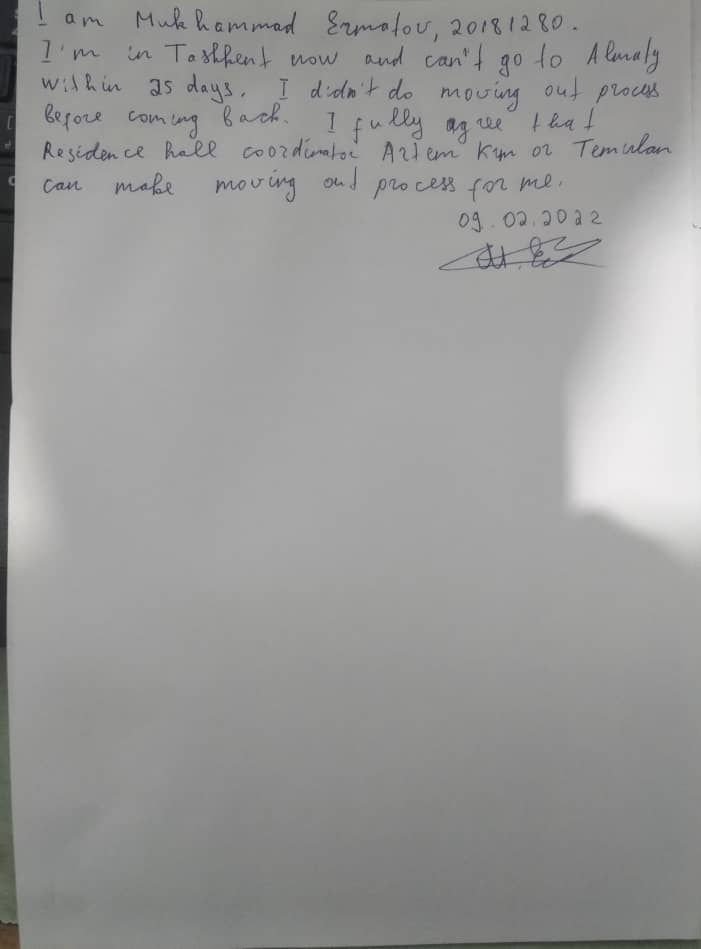 I am Mukhammad Ermatov, 20181280.
I'm in Tashkent now and can't go to Almaty
within 25 days. I didn't do moving out process
before coming back. I fully agree that
Residence hall coordinator Artem Kym or Temirlan
can make moving out process for me.
09.02.2022